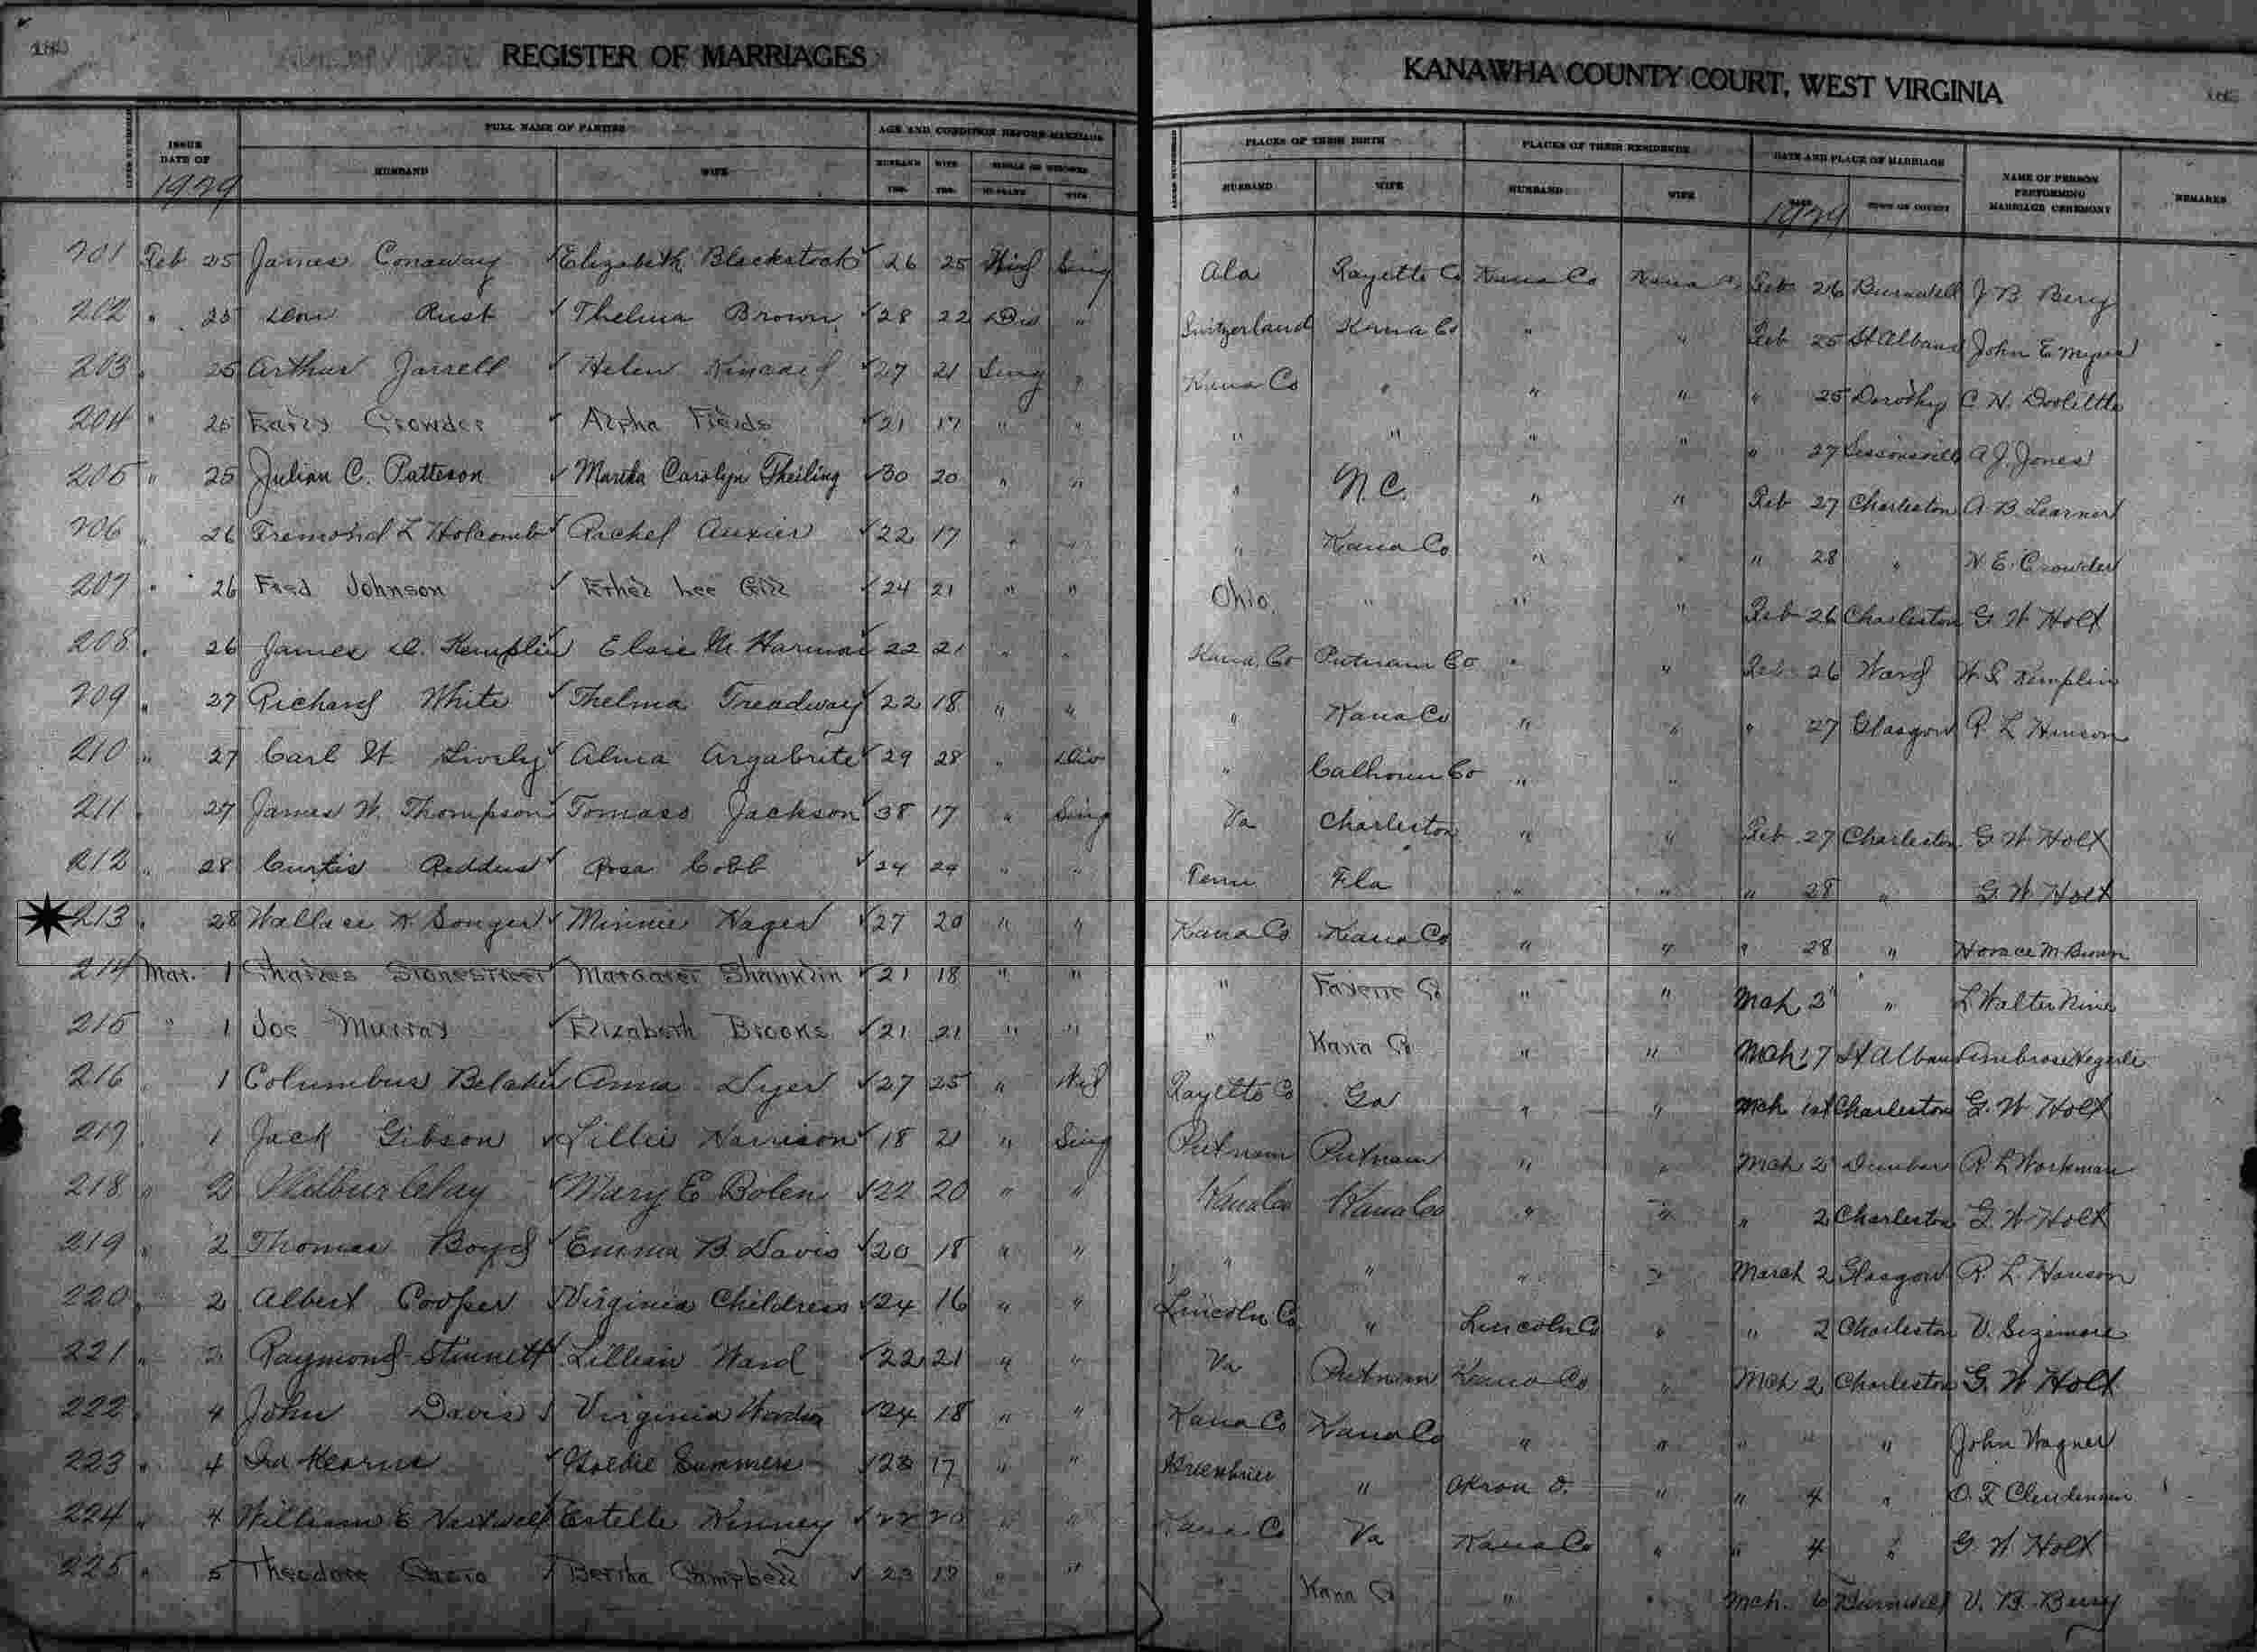 REGISTER OF MARRIAGES
KANAWHA COUNTY COURT, WEST VIRGINIA
LINES NUMBERED
ISSUE DATE OF
1929
FULL NAME OF PARTIES
HUSBAND
WIFE
AGE AND CONDITION BEFORE MARRIAGE
HUSBAND YRS.
WIFE YRS.
SINGLE OR WIDOWED
HUSBAND
WIFE
LINES NUMBERED
PLACES OF THEIR BIRTH
HUSBAND
WIFE
PLACES OF THEIR RESIDENCE
HUSBAND
WIFE
DATE AND PLACE OF MARRIAGE
DATE
1929
TOWN OR COUNTY
NAME OF PERSON PERFORMING MARRIAGE CEREMONY
REMARKS
201 Feb 25 James Conaway Elizabeth Blackstock 26 25 Wid Sing Ala Fayette Co Kana Co Kana Feb 26 Burnwell J B Berg
202 " 25 Rust Thelma Brown 28 22 Div " Switzerland Kana Co " " Feb 25 St Albans John E Myers
203 " 25 Arthur Jarrell Helen Kincaid 27 21 Sing " Kana Co " " " " 25 Dorothy C. H. Doolittle
204 " 25 Early Crowder Alpha Fields 21 17 " " " " " " " 27 Sissonsville A J. Jones
205 " 25 Julian C. Patteson Martha Carolyn Theiling 30 20 " " " N C. " " Feb 27 Charleston A. B. Learner
206 " 26 Fremond L Holcomb Rachel Auxier 22 17 " " " Kana Co " " " 28 " H E. Crowder
207 " 26 Fred Johnson Ethel Lee Gill 24 21 " " Ohio " " " Feb 26 Charleston G. W Holt
208 " 26 James D. Kemplin Elsie M. Harmon 22 21 " " Kana Co Putnam Co " " Feb 26 Ward W. S Kemplin
209 " 27 Richard White Thelma Treadway 22 18 " " " Kana Co " " " 27 Glasgow R. L Hanson
210 " 27 Carl H. Lively Alma Argabrite 29 28 " Div " Calhoun Co " "
211 " 27 James W. Thompson Tomass Jackson 38 17 " Sing Va Charleston " " Feb 27 Charleston G W Holt
212 " 28 Curtis Reddus Rosa Cobb 24 24 " " Penn Fla " " " 28 " G. W Holt
213 " 28 Wallace K. Songer Minnie Hager 27 20 " " Kana Co Kana Co " " " 28 " Horace M. Brown
214 Mar. 1 Charles Stonestreet Margaret Shanklin 21 18 " " " Fayette Co " " Mch 3 " L Walter Nine
215 " 1 Joe Murray Elizabeth Brooks 21 21 " " " Kana Co " " Mch 17 St Albans Ambrose Hegerle
216 " 1 Columbus Belcher Anna Dyer 27 25 " Wid Fayette Co Ga " " Mch 1st Charleston G. W Holt
217 " 1 Jack Gibson Lillie Harrison 18 21 " Sing Putnam Putnam " " Mch 2 Dunbar R L Workman
218 " 2 Wilbur Clay Mary E Bolen 22 20 " " Kana Co Kana Co " " " 2 Charleston G. W Holt
219 " 2 Thomas Boyd Emma B. Davis 20 18 " " " " " " March 2 Glasgow R. L. Hanson
220 " 2 Albert Cooper Virginia Childress 24 16 " " Lincoln Co. " Lincoln Co " " 2 Charleston V. Sizemore
221 " 2 Raymond Stinnett Lillian Ward 22 21 " " Va Putnam Kana Co " Mch 2 Charleston G. W Holt
222 " 4 John Davis Virginia 24 18 " " Kana Co Kana Co " " " " " John Wagner
223 " 4 Ira Kearns Goldie Summers 23 17 " " Greenbrier " Akron O. " " 4 " O. F Clendennin
224 " 4 William E Hartwell Estelle Kinney 22 20 " " Kana Co Va Kana Co " " 4 " G. W. Holt
225 " 5 Theodore Bertha Campbell 23 19 " " " Kana Co " " Mch. 6 Burnwell V. B. Berry